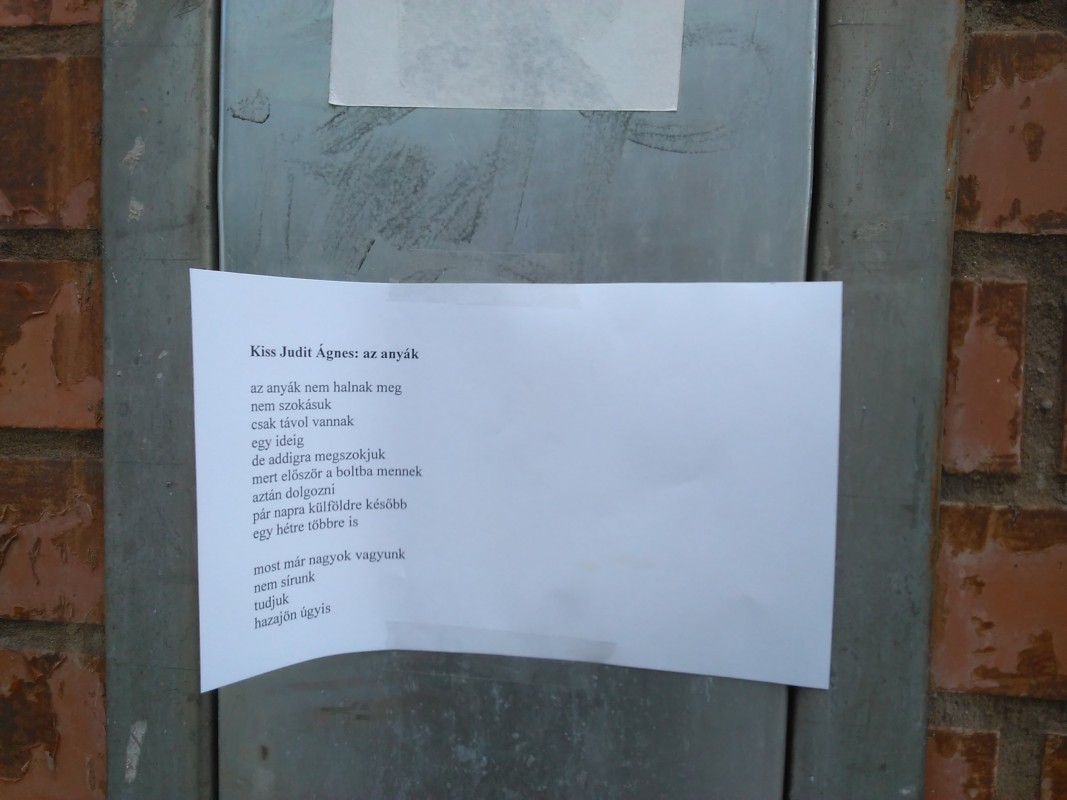 Kiss Judit Ágnes: az anyák
az anyák nem halnak meg
nem szokásuk
csak távol vannak
egy ideig
de addigra megszokjuk
mert először a boltba mennek
aztán dolgozni
pár napra külföldre később
egy hétre többre is
most már nagyok vagyunk
nem sírunk
tudjuk
hazajön úgyis